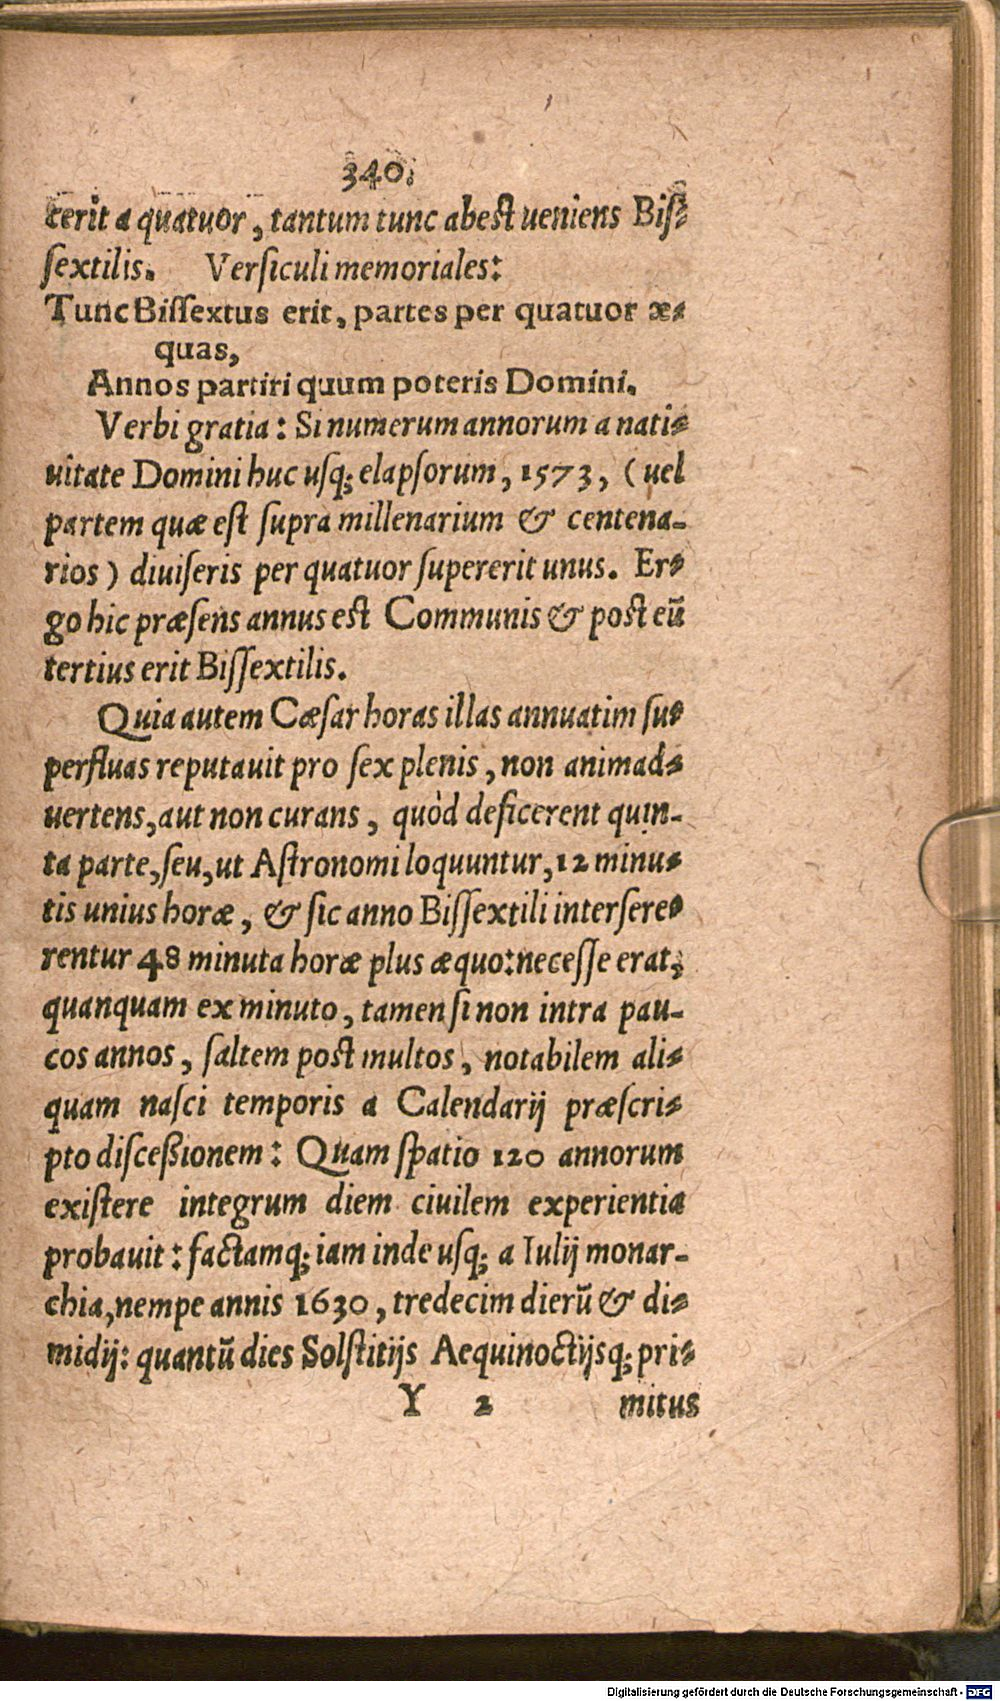 340.
terit a quatuor, tantum tunc abest ueniens Bis-
sextilis. Versiculi memoriales:
Tunc Bissextus erit, partes per quatuor æ-
quas,
Annos partiri quum poteris Domini.
Verbi gratia: Si numerum annorum a nati-
uitate Domini huc usq; elapsorum, 1573, (uel
partem quæ est supra millenarium & centena-
rios) diuiseris per quatuor supererit unus. Er-
go hic præsens annus est Communis & post eũ
tertius erit Bissextilis.
Quia autem Cæsar horas illas annuatim su-
perfluas reputauit pro sex plenis, non animad-
uertens, aut non curans, quòd deficerent quin-
ta parte, seu, ut Astronomi loquuntur, 12 minu-
tis unius horæ, & sic anno Bissextili intersere-
rentur 48 minuta horæ plus æquo: necesse erat,
quanquam ex minuto, tamen si non intra pau-
cos annos, saltem post multos, notabilem ali-
quam nasci temporis a Calendarij præscri-
pto disceßionem: Quam spatio 120 annorum
existere integrum diem ciuilem experientia
probauit: factamq; iam inde usq; a Iulij monar-
chia, nempe annis 1630, tredecim dierũ & di-
midij: quantũ dies Solstitijs Aequinoctijsq; pri-
Y 2 mitus
Digitalisierung gefördert durch die Deutsche Forschungsgemeinschaft - DFG